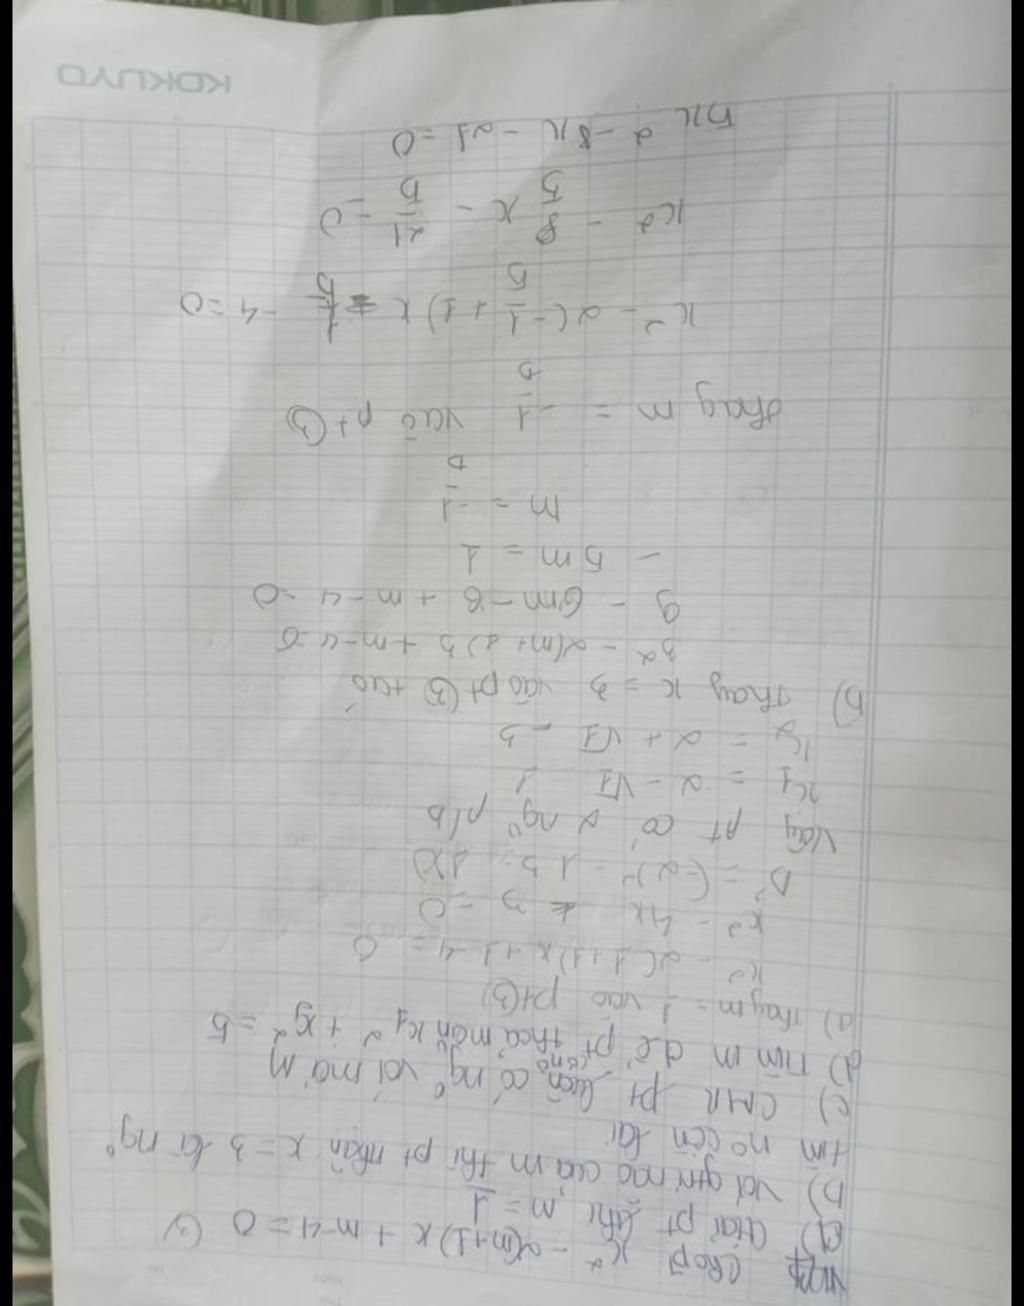 Cho pt x² - 2(m+1)x + m-4 = 0 (1)
a) Giải pt khi m = 1
b) với gtri nào của m thì pt nhận x = 3 là ng°
tìm n° còn lại
c) CMR pt luôn có ng° với mọi m
d) Tìm m để pt thỏa mãn x1² + x2² = 5
a) Thay m = 1 vào pt (1)
x2 - 2(1+1)x + 1 - 4 = 0
x2 - 4x - 3 = 0
Δ' = (-2)² - 1.3 = 1 > 0
Vậy pt có 2 ng° p/b
x1 = 2 - √1 = 1
x2 = 2 + √1 = 3
b) Thay x = 3 vào pt (1) ta có
32 - 2(m+1)3 + m-4 = 0
9 - 6m - 6 + m - 4 = 0
- 5m = 1
m = -1/5
thay m = -1/5 vào pt (1)
x² - 2(-1/5 + 1)x - 1/5 - 4 = 0
x2 - 8/5 x - 21/5 = 0
5x2 - 8x - 21 = 0
KOKUYO